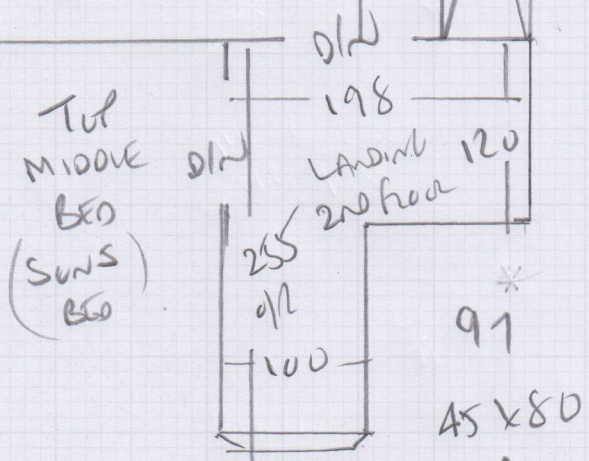 D/N
198
TOP
MIDDLE
BED
(SUNS
BED)
D/N
LANDING
2ND FLOOR
120
255
O/R
100
91
45 x 80